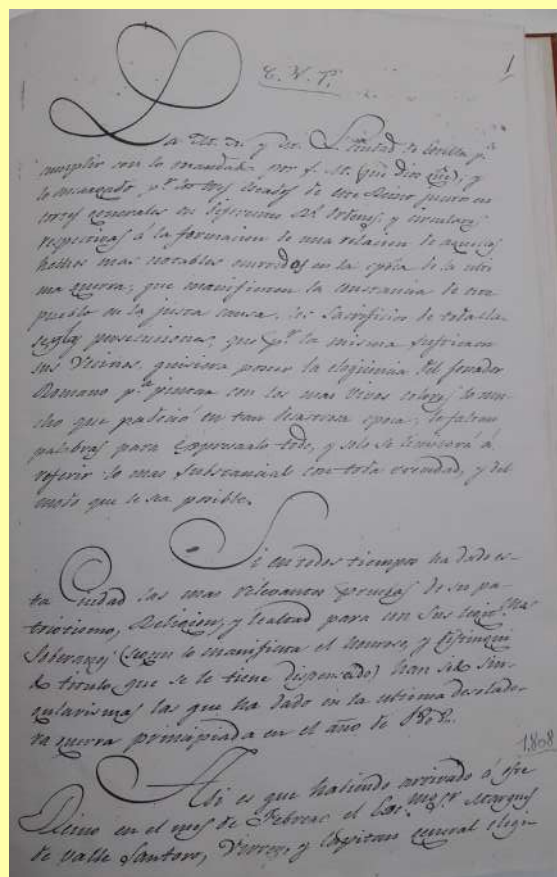 1
La M. N. y M. L. Ciudad de Sevilla p.ª
cumplir con lo mandado por S. M. que Dios gūe, y
lo encargado p.r los tres Estados de este Reino junto en
Cortes generales en diferentes Rs. Ordenes, y circulares
respectivas á la formacion de una relacion de aquellos
hechos mas notables ocurridos en la epoca de la ulti
ma guerra, que manifiesten la constancia de este
pueblo en la justa causa, los sacrificios de toda cla
se, y las persecuciones, que p.r la misma sufrieron
sus Vecinos, quisiera poseer la eloqüencia del Senador
Romano p.ª pintar con los mas vivos colores lo mu
cho que padeció en tan desastrosa epoca; le faltan
palabras para expresarlo todo, y solo se limitará á
referir lo mas substancial con toda verdad, y del
modo que le sea posible.
Si en todos tiempos ha dado es-
ta Ciudad las mas relevantes pruebas de su pa-
triotismo, Religion, y lealtad para con sus legit.mos
Soberanos (segun lo manifiesta el honroso, y distingui
do titulo, que se le tiene dispensado) han sido sin-
gularisimas las que ha dado en la ultima desolado-
ra guerra principiada en el año de 1808.
1.808
Asi es que habiendo arrivado á este
Reino en el mes de Febrero el Exc.mo S.r Marques
de Valle Santoro, Virrey, y Capitan general eligi